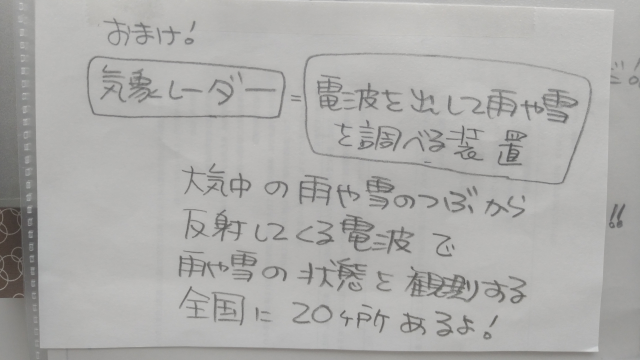 おまけ!
気象レーダー = 電波を出して雨や雪
を調べる装置
大気中の雨や雪のつぶから
反射してくる電波で
雨や雪の状態を観測する
全国に20ヶ所あるよ!
!!